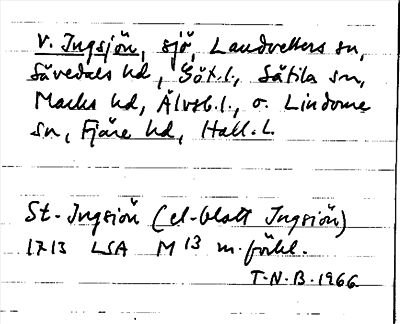 V. Ingsjön, sjö, Landvetters sn,
Sävedals hd, Göt.l., Sätila sn,
Marks hd, Älvsb.l., o. Lindome
sn, Fjäre hd, Hall.l.
St. Ingsiön (el. blott Ingsiön)
1713 LSA M 13 m. förkl.
T.N.B. 1966